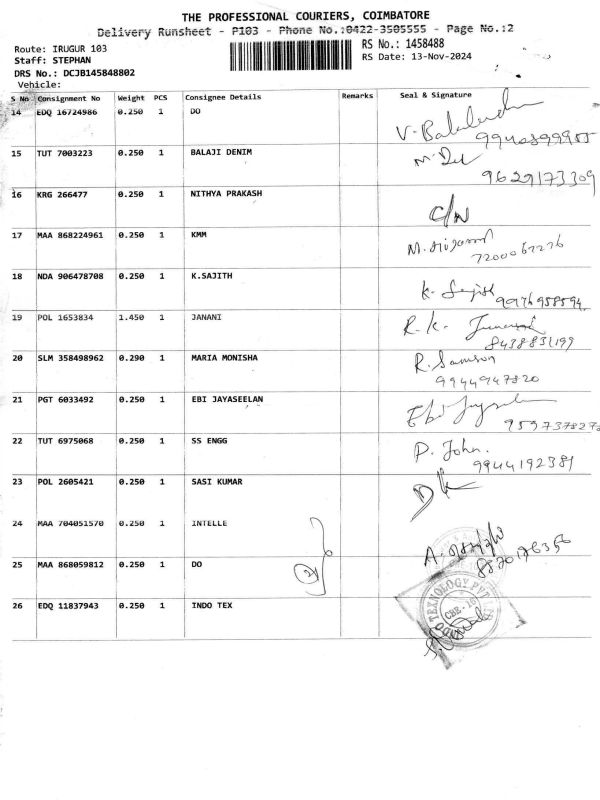 THE PROFESSIONAL COURIERS, COIMBATORE
Delivery Runsheet - P103 - Phone No.:0422-3505555 - Page No.:2
Route: IRUGUR 103
RS No.: 1458488
Staff: STEPHAN
RS Date: 13-Nov-2024
DRS No.: DCJB145848802
Vehicle:
S No Consignment No Weight PCS Consignee Details Remarks Seal & Signature
14 EDQ 16724986 0.250 1 DO
15 TUT 7003223 0.250 1 BALAJI DENIM
9629173309
16 KRG 266477 0.250 1 NITHYA PRAKASH C/N
17 MAA 868224961 0.250 1 KMM
7200067276
18 NDA 906478708 0.250 1 K.SAJITH K. Sajith
9976958594
19 POL 1653834 1.450 1 JANANI R.K.
8438831199
20 SLM 358498962 0.290 1 MARIA MONISHA R. Samson
9944947820
21 PGT 6033492 0.250 1 EBI JAYASEELAN Ebi
22 TUT 6975068 0.250 1 SS ENGG P. John.
9944192381
23 POL 2605421 0.250 1 SASI KUMAR
24 MAA 704051570 0.250 1 INTELLE
25 MAA 868059812 0.250 1 DO
26 EDQ 11837943 0.250 1 INDO TEX
TEXNOLOGY PVT
CBE - 16